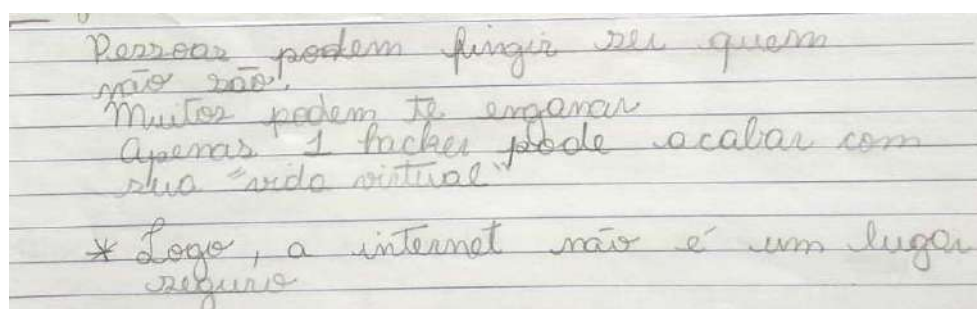 Pessoas podem fingir ser quem
não são!
Muitos podem te enganar
Apenas 1 hacker pode acabar com
sua "vida virtual"
* Logo, a internet não é um lugar
seguro